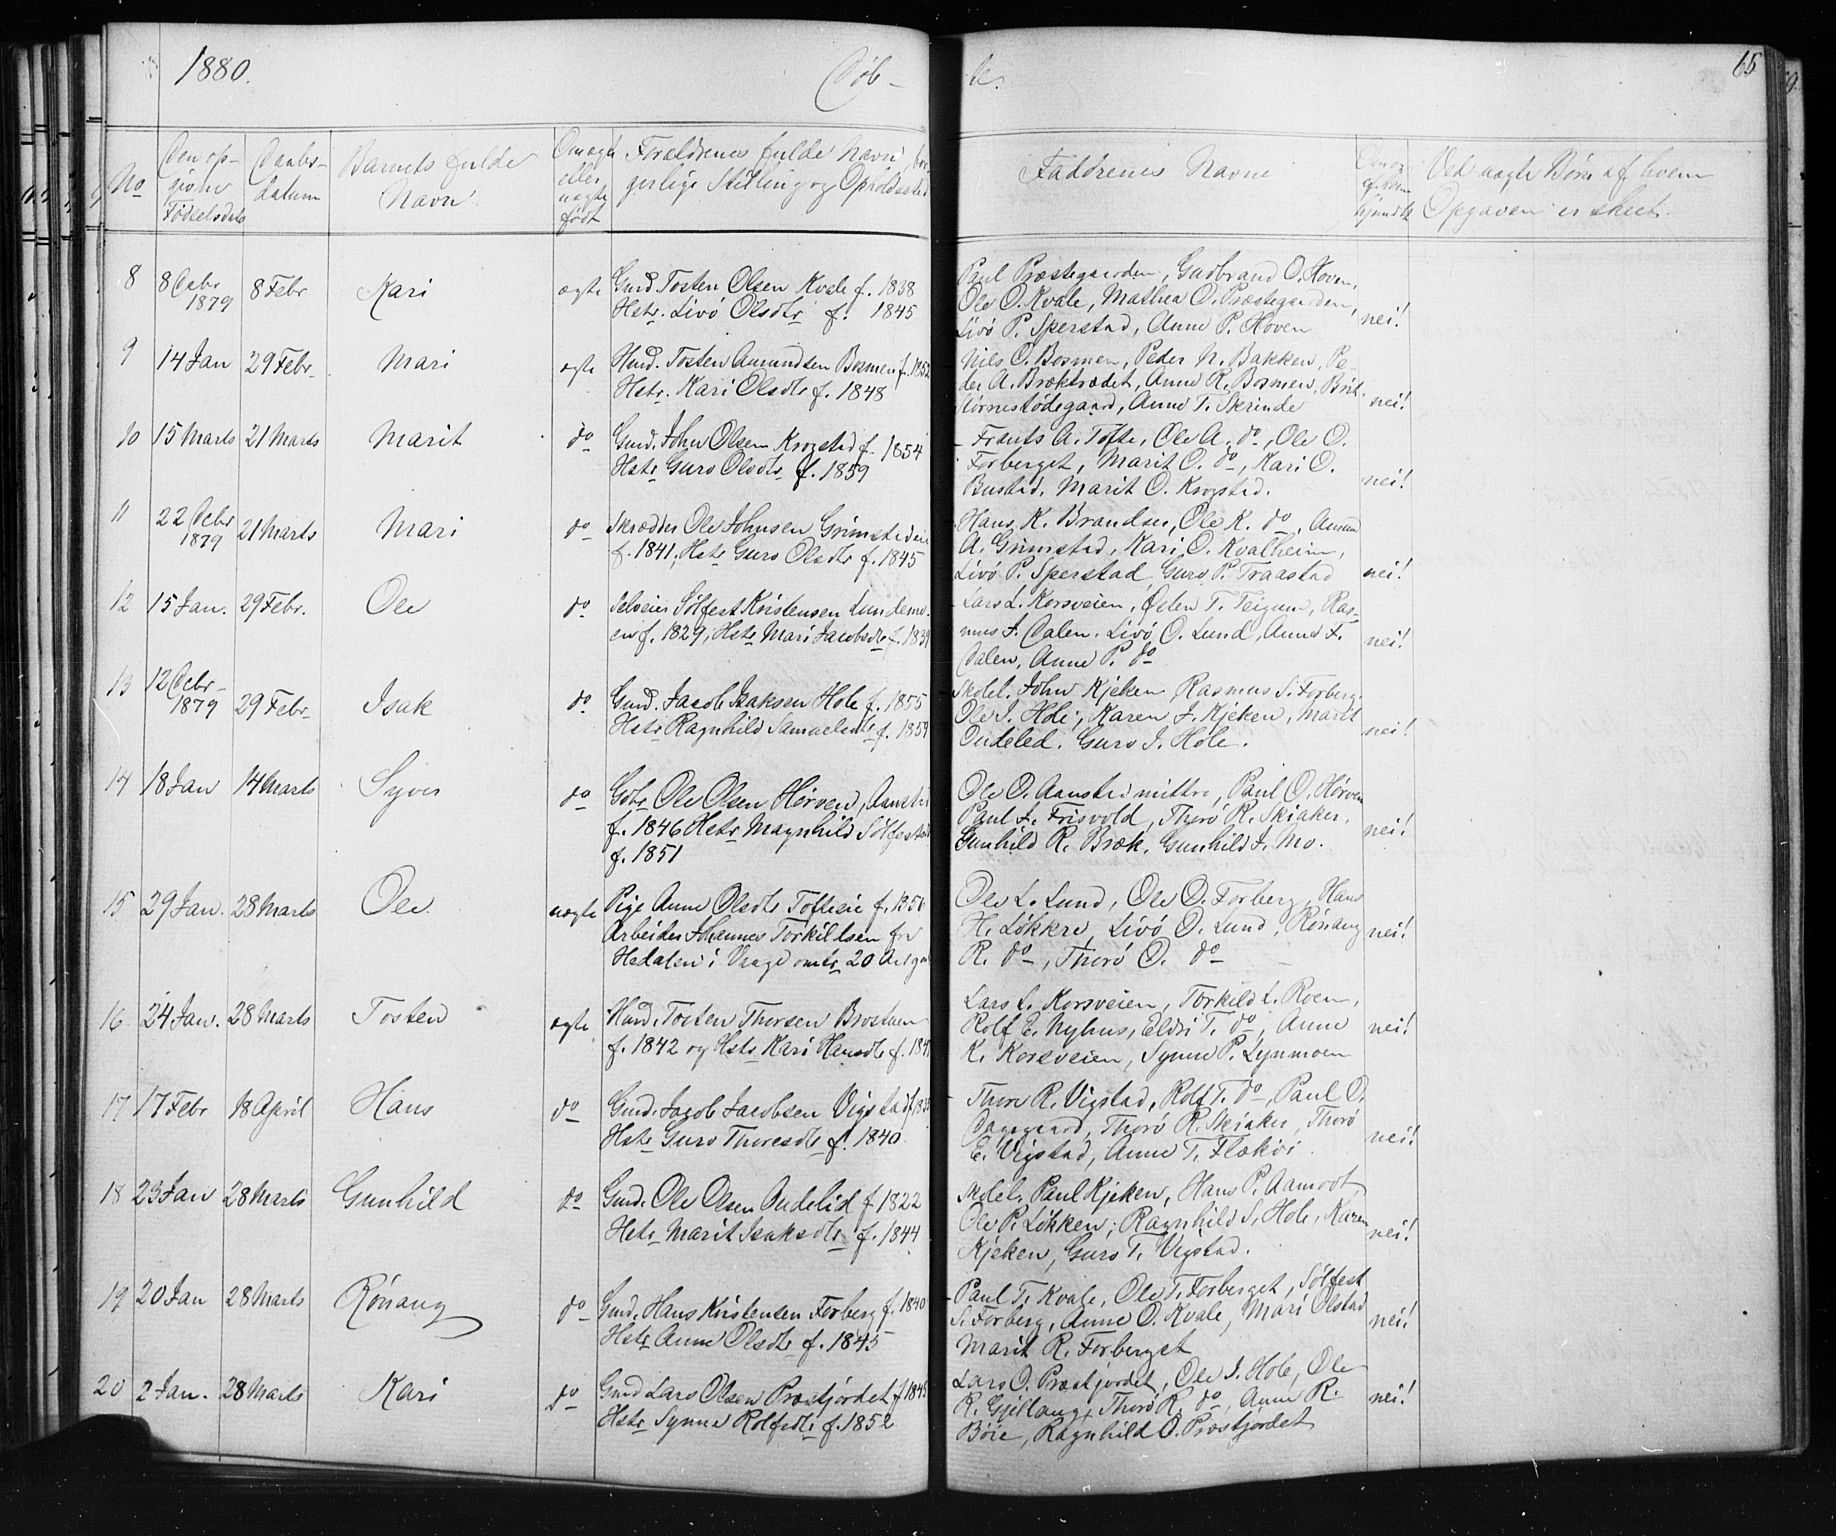 1880.
Døb-
te.
65
No
Den op-
givne
Fødselsdato
Daabs-
datum
Barnets fulde
Navn.
Om ægte
eller
uægte
født
Forældrenes fulde Navn, bor-
gerlige Stilling og Opholdssted
Faddrenes Navne
Ved uægte Børn af hvem
Opgaven er skeet.
8 8 Decbr 1879 8 Febr Kari ægte Gmd. Tosten Olsen Kvale f. 1838
Hstr. Livö Olsdtr f. 1845
Paul Præstegaarden, Gudbrand O. Hoven,
Ole O. Kvale, Mathea O. Præstegaarden,
Livö P. Sperstad, Anne P. Hoven nei!
9 14 Jan 29 Febr. Mari ægte Hmd. Tosten Amundsen Bosmen f. 1852
Hstr. Kari Olsdtr f. 1848
Nils O. Bosmen, Peder N. Bakken, Pe-
der A. Bræktrædet, Anne K. Bosmen, Brit
Störnestödegaard, Anne T. Skrinde nei!
10 15 Marts 21 Marts Marit do Gmd. John Olsen Krogstad f. 1854
Hstr Guro Olsdtr f. 1859
Frants A. Tofte, Ole A. do, Ole O.
Forberget, Marit O. do, Kari O.
Bustad, Marit O. Krogstad. nei!
11 22 Decbr 1879 21 Marts Mari do Skrædder Ole Johnsen Grimstadeie
f. 1841, Hstr Guro Olsdtr f. 1845
Hans K. Brandser, Ole K. do, Amund
A. Grimstad, Kari O. Kvalheim,
Livö P. Sperstad, Guro P. Traastad nei!
12 15 Jan. 29 Febr. Ole do Selveier Sölfest Kristensen Lundemo-
en f. 1829, Hstr Mari Jacobsdtr f. 1839
Lars L. Korsveien, Östen T. Teigum, Ras-
mus J. Dalen, Livö O. Lund, Anne J.
Dalen, Anne P. do nei!
13 12 Decbr 1879 29 Febr. Isak do Gmd. Jacob Isaksen Hole f. 1855
Hstr Ragnhild Samuelsdtr f. 1859
Skolel. John Kjeken, Rasmus S. Forberg.
Ole I. Hole, Karen J. Kjeken, Marit
Andeled. Guro I. Hole. nei!
14 18 Jan 14 Marts Syver do Gbr. Ole Olsen Hörven, Aanstad
f. 1846 Hstr Magnhild Sölfestdtr
f. 1851
Ole O. Aanstad mittre, Paul O. Hörven
Paul J. Frisvold, Thorö R. Skiaker,
Gunhild R. Bræk, Gunhild J. Mo. nei!
15 29 Jan. 28 Marts Ole uægte Pige Anne Olsdtr Tofteeie f. 1856
Arbeider Johannes Torkildsen fra
Hedalen i Vaage omtr 20 Aar gml
Ole L. Lund, Ole O. Forberg, Hans
H. Løkkre, Livö O. Lund, Rönaug
R. do, Thorö O. do nei!
16 24 Jan. 28 Marts Tosten ægte Hmd. Tosten Thorsen Brostuen
f. 1842 og Hstr Kari Hansdtr f.
Lars L. Korsveien, Torkild L. Roen,
Rolf E. Nyhus, Eldri T. do, Anne
K. Korsveien, Synne P. Lynmoen nei!
17 17 Febr 18 April Hans do Gmd. Jacob Jacobsen Vigstad
Hstr Guro Thoresdtr f. 1840
Thore R. Vigstad, Rolf T. do, Paul O.
Dagsgaard, Thorö R. Skiaker, Thorö
E. Vigstad, Anne T. Flæköi nei!
18 23 Jan 28 Marts Gunhild do Gmd. Ole Olsen Andelid f 1822
Hstr Marit Isaksdtr f. 1844
Skolel. Paul Kjeken, Hans P. Aamodt,
Ole P. Løkken, Ragnhild S. Hole, Karen
Kjeken, Guro T. Vigstad. nei!
19 20 Jan 28 Marts Rönaug do Gmd. Hans Kristensen Forberg f. 1840
Hstr Anne Olsdtr f. 1845
Paul T. Kvale, Ole T. Forberget, Sölfest
S. Forberg, Anne O. Kvale, Mari Olstad
Marit R. Forberget nei!
20 2 Jan. 28 Marts Kari do Gmd Lars Olsen Præstjordet f 1845
Hstr Synne Rolfsdtr f. 1852
Lars O. Præstjordet, Ole I. Hole, Ole
R. Gjeilaug, Thorö R. do, Anne R.
Böie, Ragnhild O. Præstjordet nei!